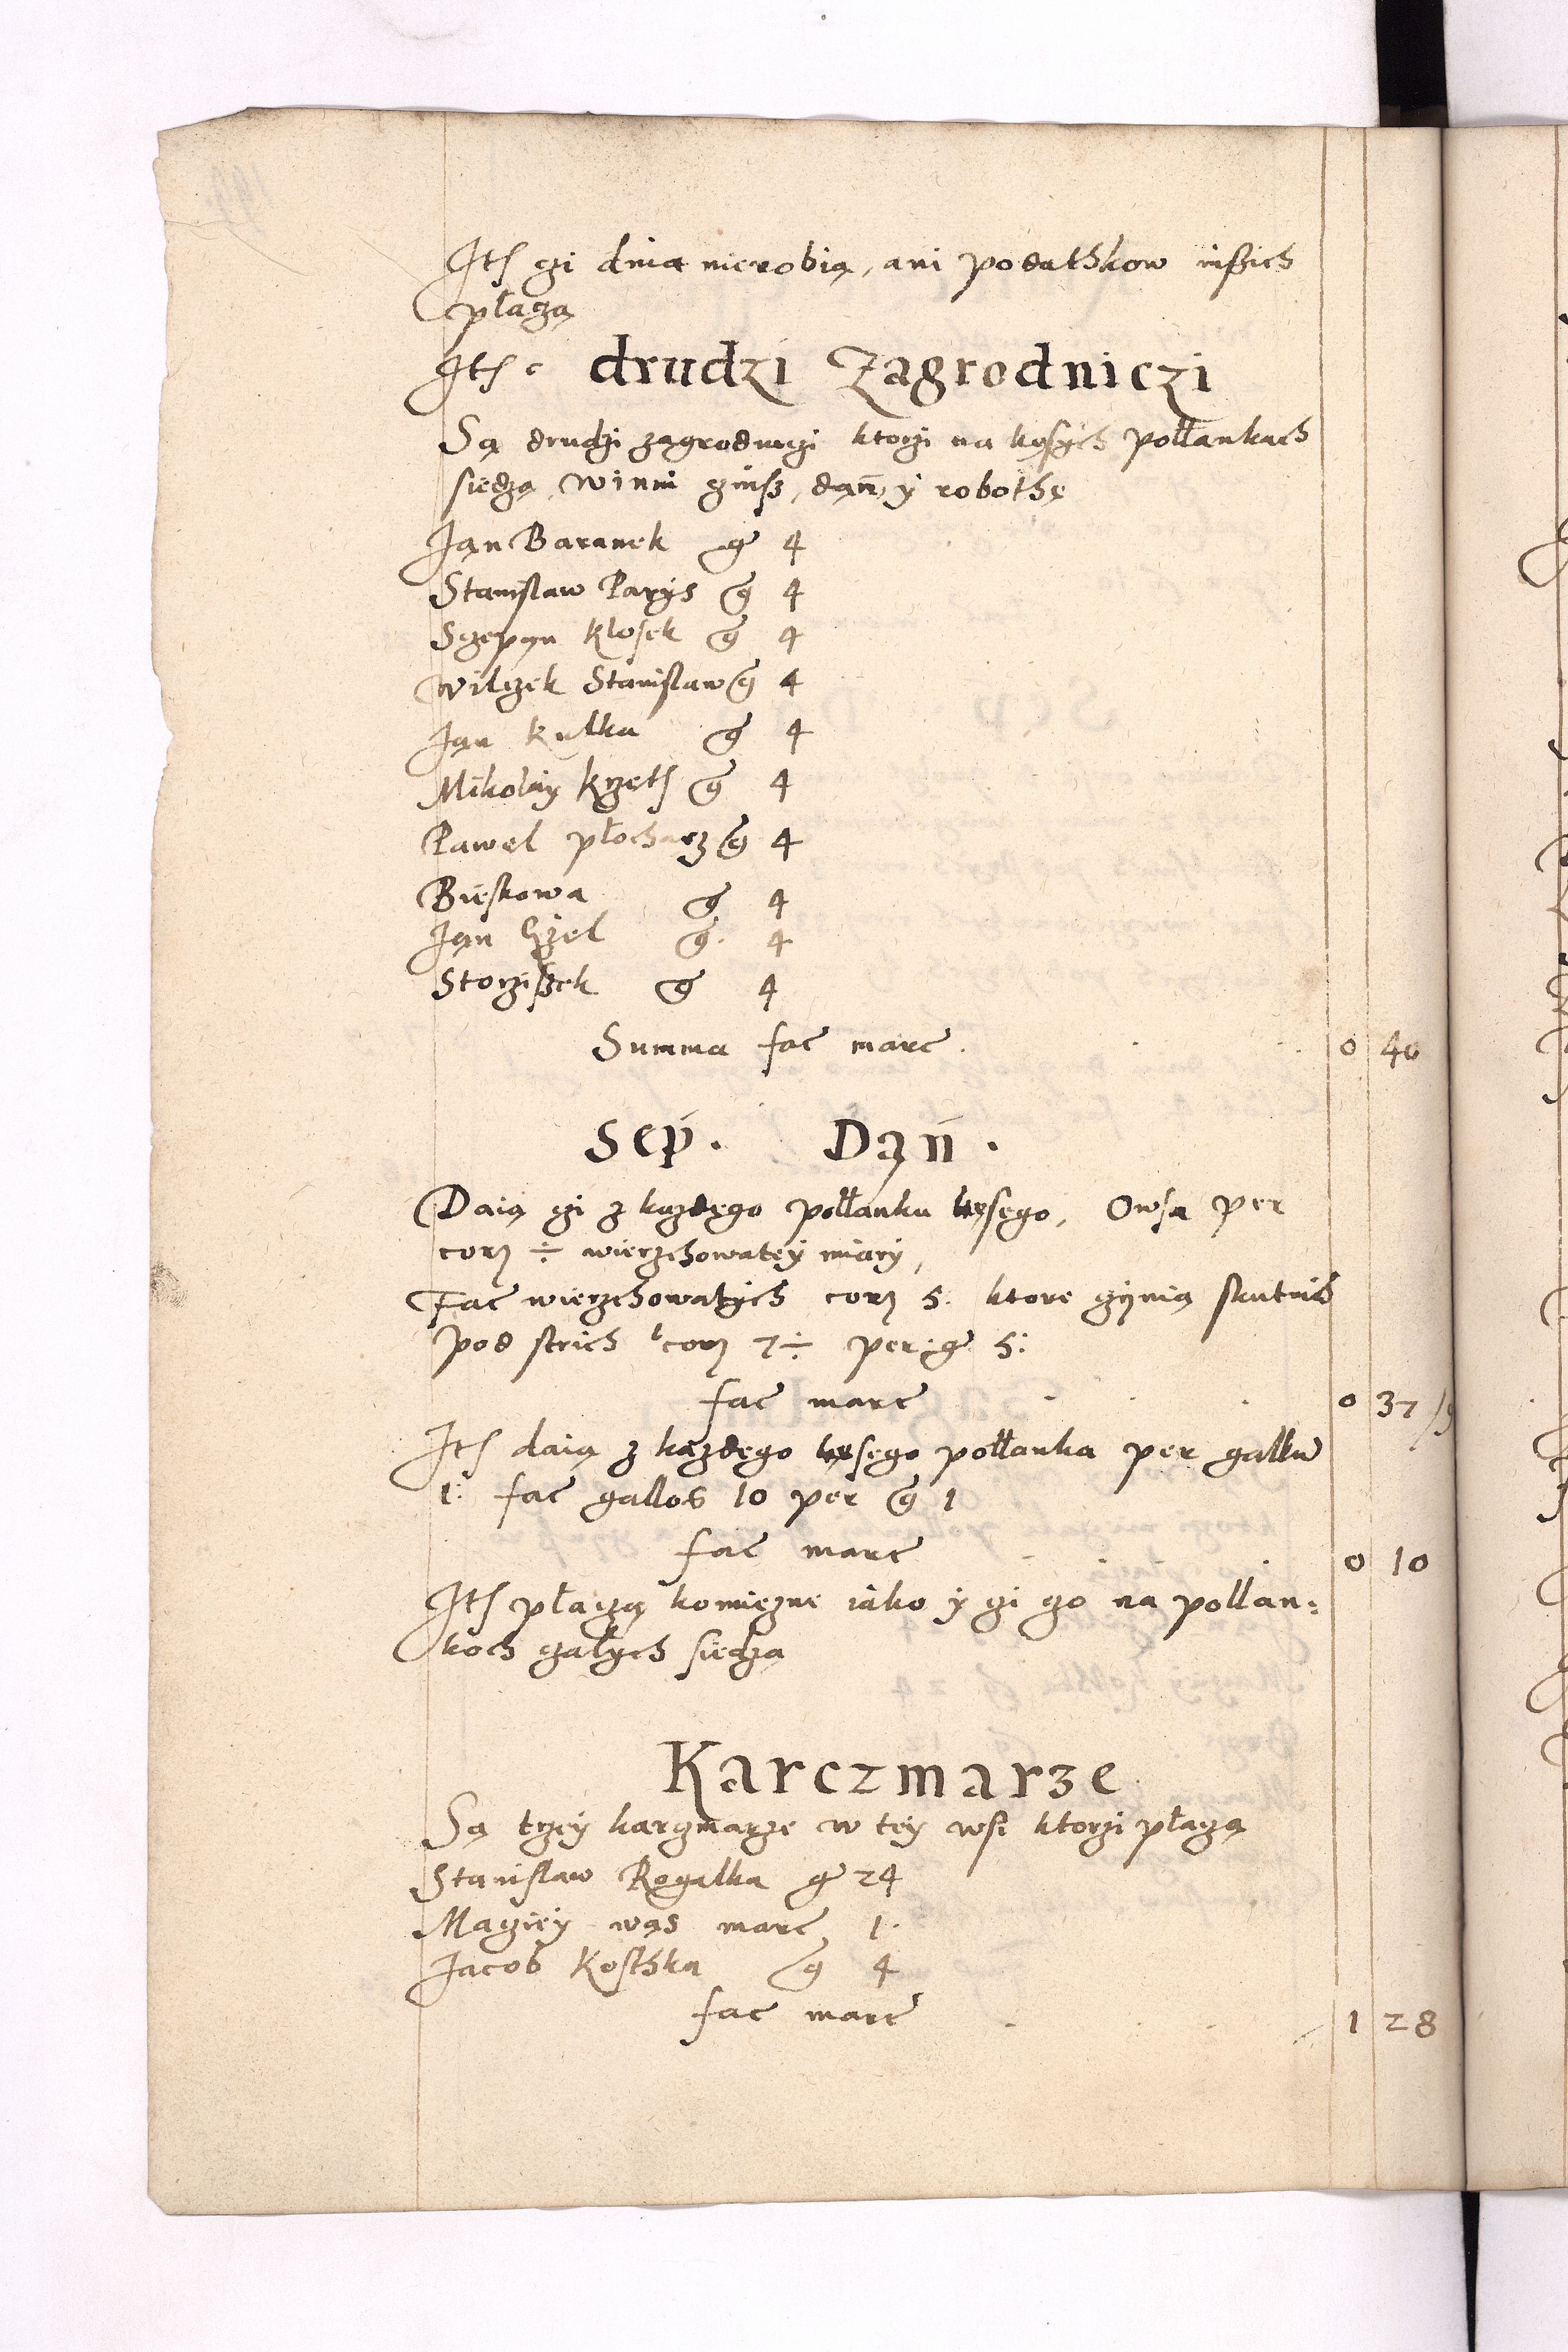 Ith czi dnia nierobią, ani podathkow inßich
płaczą
Ith drudzi Zagrodniczi
Są drudzi zagrodniczi ktorzi na kęsych połłankach
siedzą, winni czinß, dąń, y robothę
Jan Baranek g 4
Stanisław Parys g 4
Sczepąn Klosek g 4
Wilczek Stanisław g 4
Jan Kulka g 4
Mikołay Krzeth g 4
Paweł płocharz g 4
Bieskowa g 4
Jąn g. 4
Storzißek g 4
Summa fac marc. 0 40
Sep. Dąń.
Daią czi z kazdego połłanku kęsego, Owsa per
cor ÷ wierzchowatey miary,
Fac wierzchowatych cor 5. ktore czynią
pod strich cor 7÷ per g 5:
fac marc 0 37/9
Ith daią z kazdego kęsego połłanka per gallu
1: fac gallos 10 per g 1
fac marc 0 10
Ith płaczą komięzne iako y czi czo na pollan:
koch czałych siedzą
Karczmarze
Są trzey karczmarze w tey wsi ktorzi płaczą
Stanisław Rogalka g 24
Maciey wąs marc 1.
Jacob Kosthka g 4
fac marc 1 28